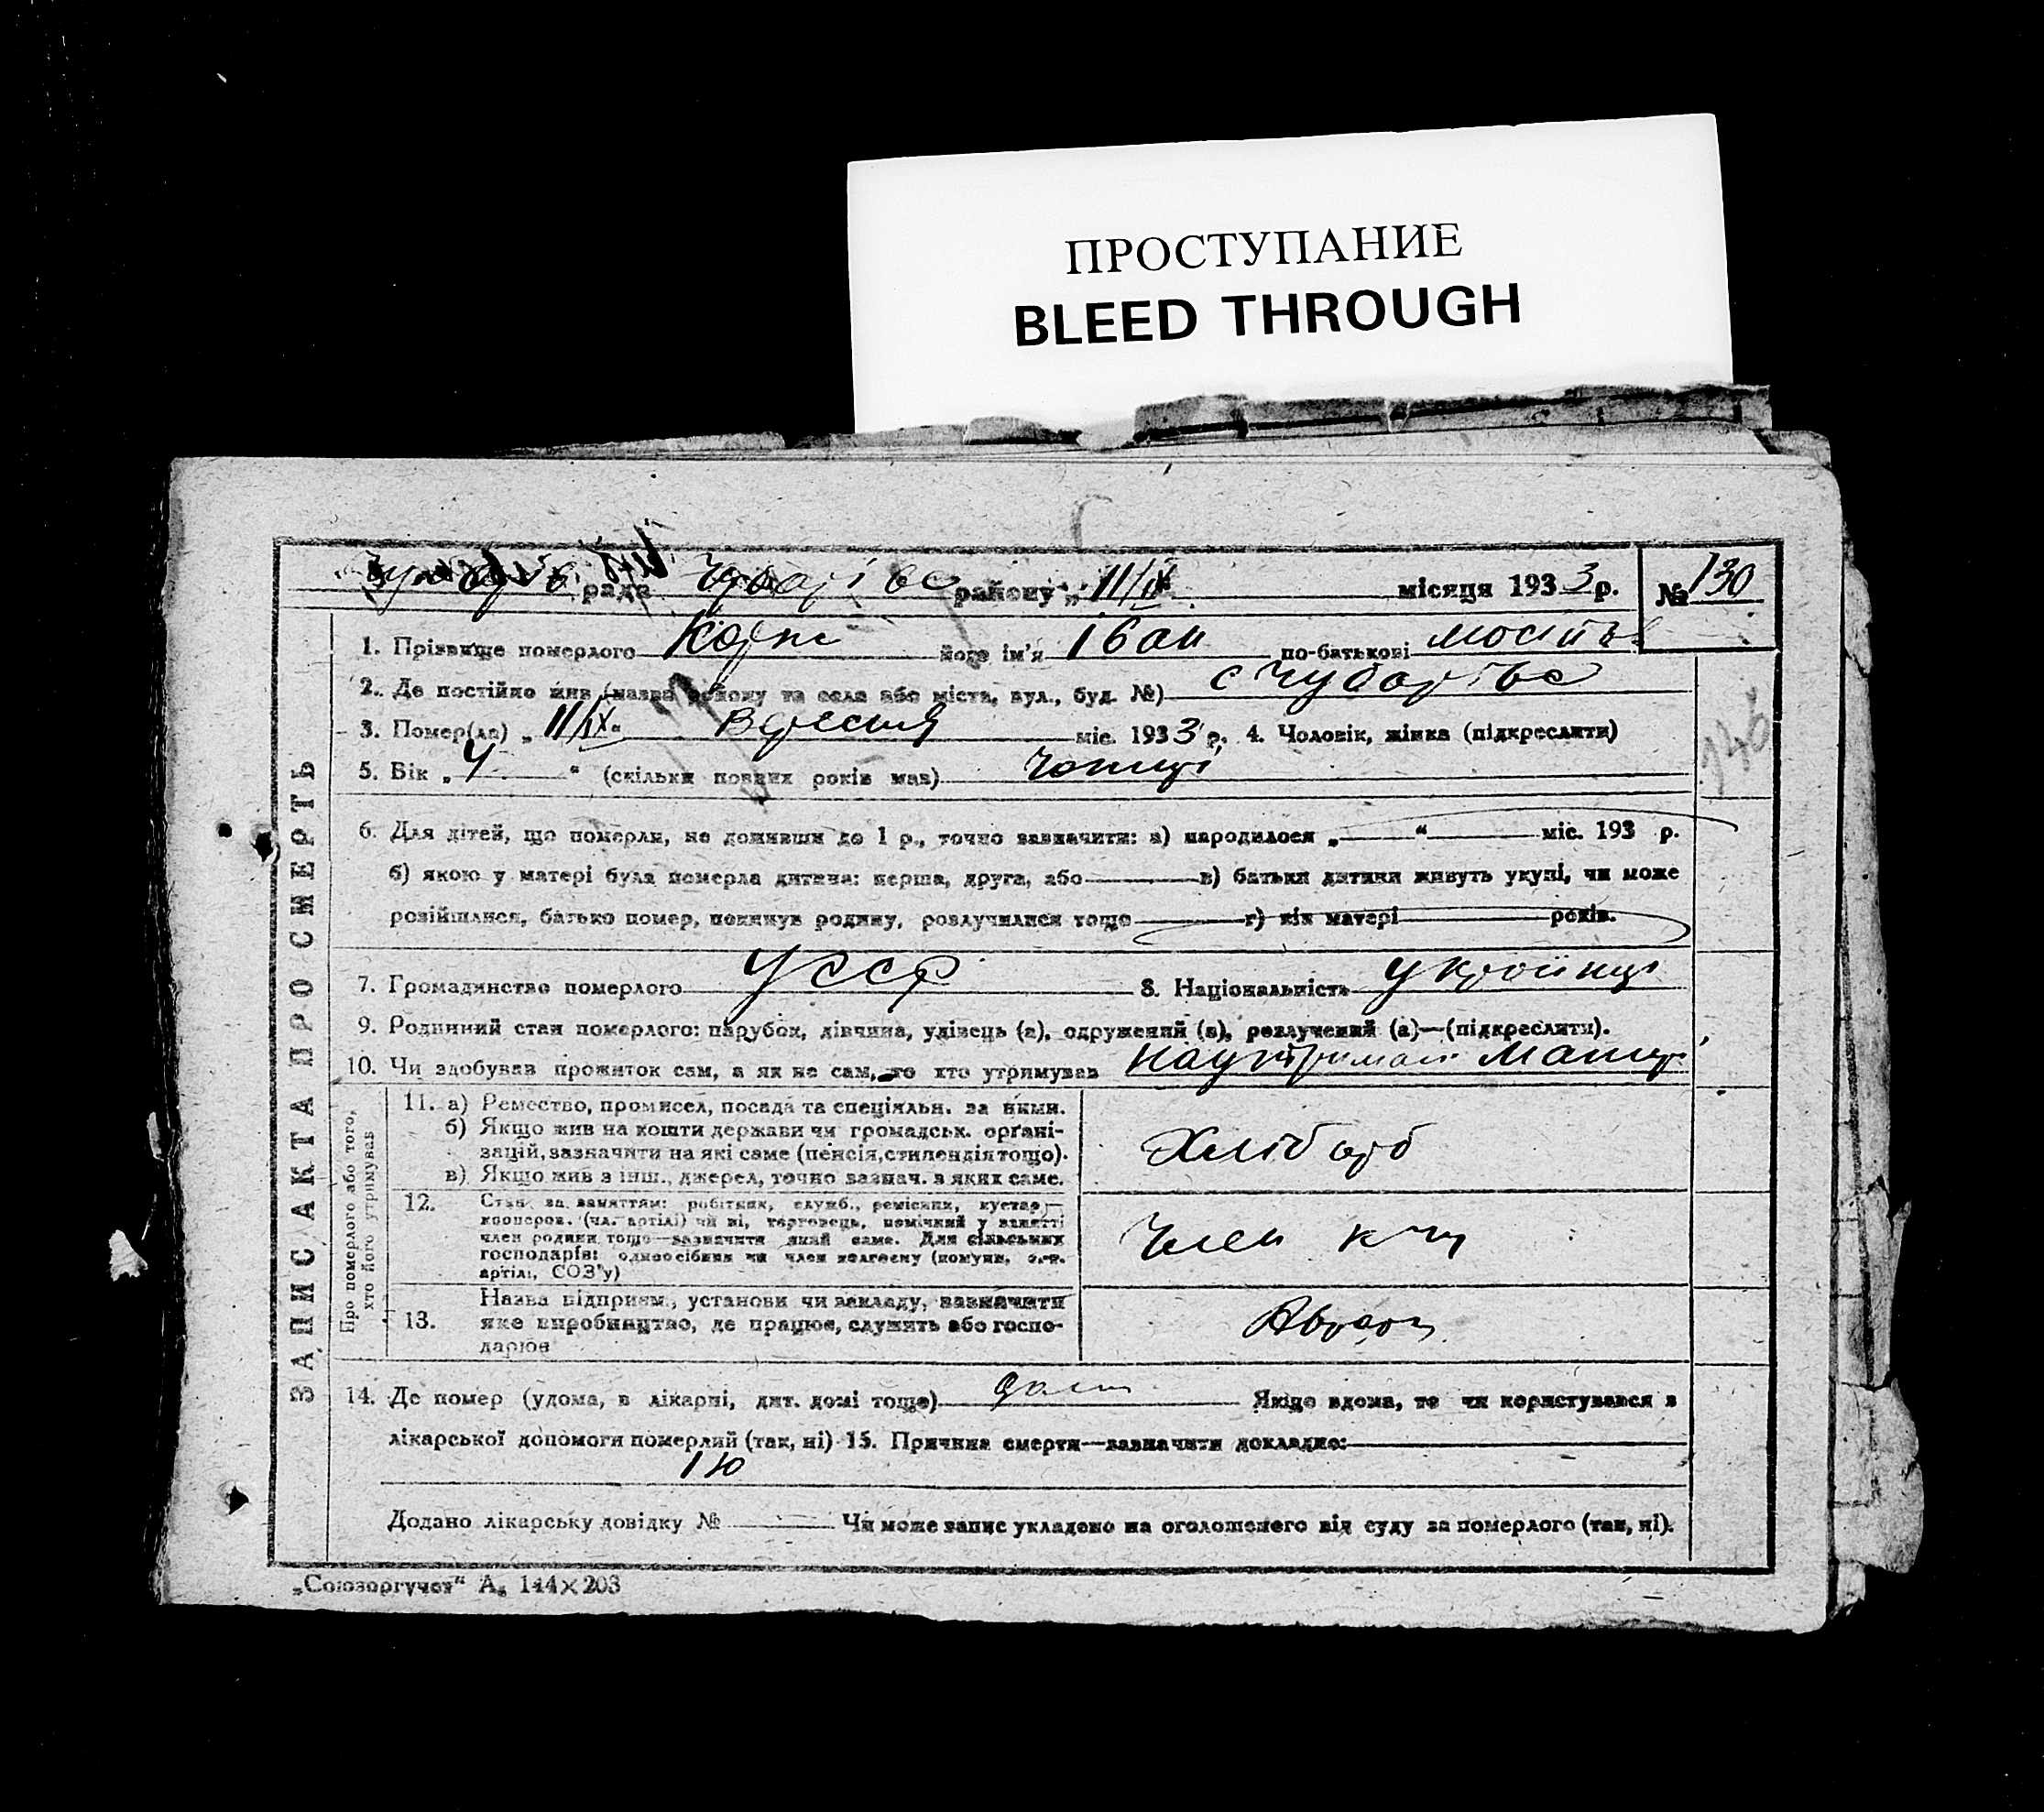 ПРОСТУПАНИЕ
BLEED THROUGH
рада район у „ 11/IX місяця 1933 р. № 130
1. Прізвище померлого його ім'я Іван по-батькові
2. Де постійно жив (назва району та села або міста, вул., буд. №) с
3. Помер(ла) „ 11/IX “ вересня міс. 1933 р. 4. Чоловік, жінка (підкреслити)
5. Вік „ 4 “ (скільки повних років мав) чотирі
6. Для дітей, що померли, не доживши до 1 р., точно зазначити: а) народилося „ “ міс. 193 р.
б) якою у матері була померла дитина: перша, друга, або в) батьки дитини живуть укупі, чи може
розійшлися, батько помер, покинув родину, розлучилися тощо г) вік матері років.
7. Громадянство померлого УССР 8. Національність
9. Родинний стан померлого: парубок, дівчина, удівець (а), одружений (а), розлучений (а)—(підкреслити).
10. Чи здобував прожиток сам, а як не сам, то хто утримував
ЗАПИС АКТА ПРО СМЕРТЬ
Про померлого або того, хто його утримував
11. а) Ремество, промисел, посада та спеціяльн. за ними.
б) Якщо жив на кошти держави чи громадськ. органі-
зацій, зазначити на які саме (пенсія, стипендія тощо).
в) Якщо жив з інш., джерел, точно зазнач. з яких саме.
Хлібороб
12. Стан за заняттям: робітник, служб., ремісник, кустар—
кооперов. (чл. артілі) чи ні, торговець, помічний у занятті
член родини тощо—зазначити який саме. Для сільських
господарів: одноосібник чи член колгоспу (комуни, с.-г.
артілі, СОЗ'у)
Член
13. Назва підприєм., установи чи закладу, зазначити
яке виробництво, де працює, служить або госпо-
дарює
14. Де помер (удома, в лікарні, дит. домі тоще) Якщо вдома, то чи користувався з
лікарської допомоги померлий (так, ні) 15. Причина смерти—зазначити докладно:
Додано лікарську довідку № Чи може запис укладено на оголошеного від суду за померлого (так, ні).
„Союзоргучот“ А„ 144×203